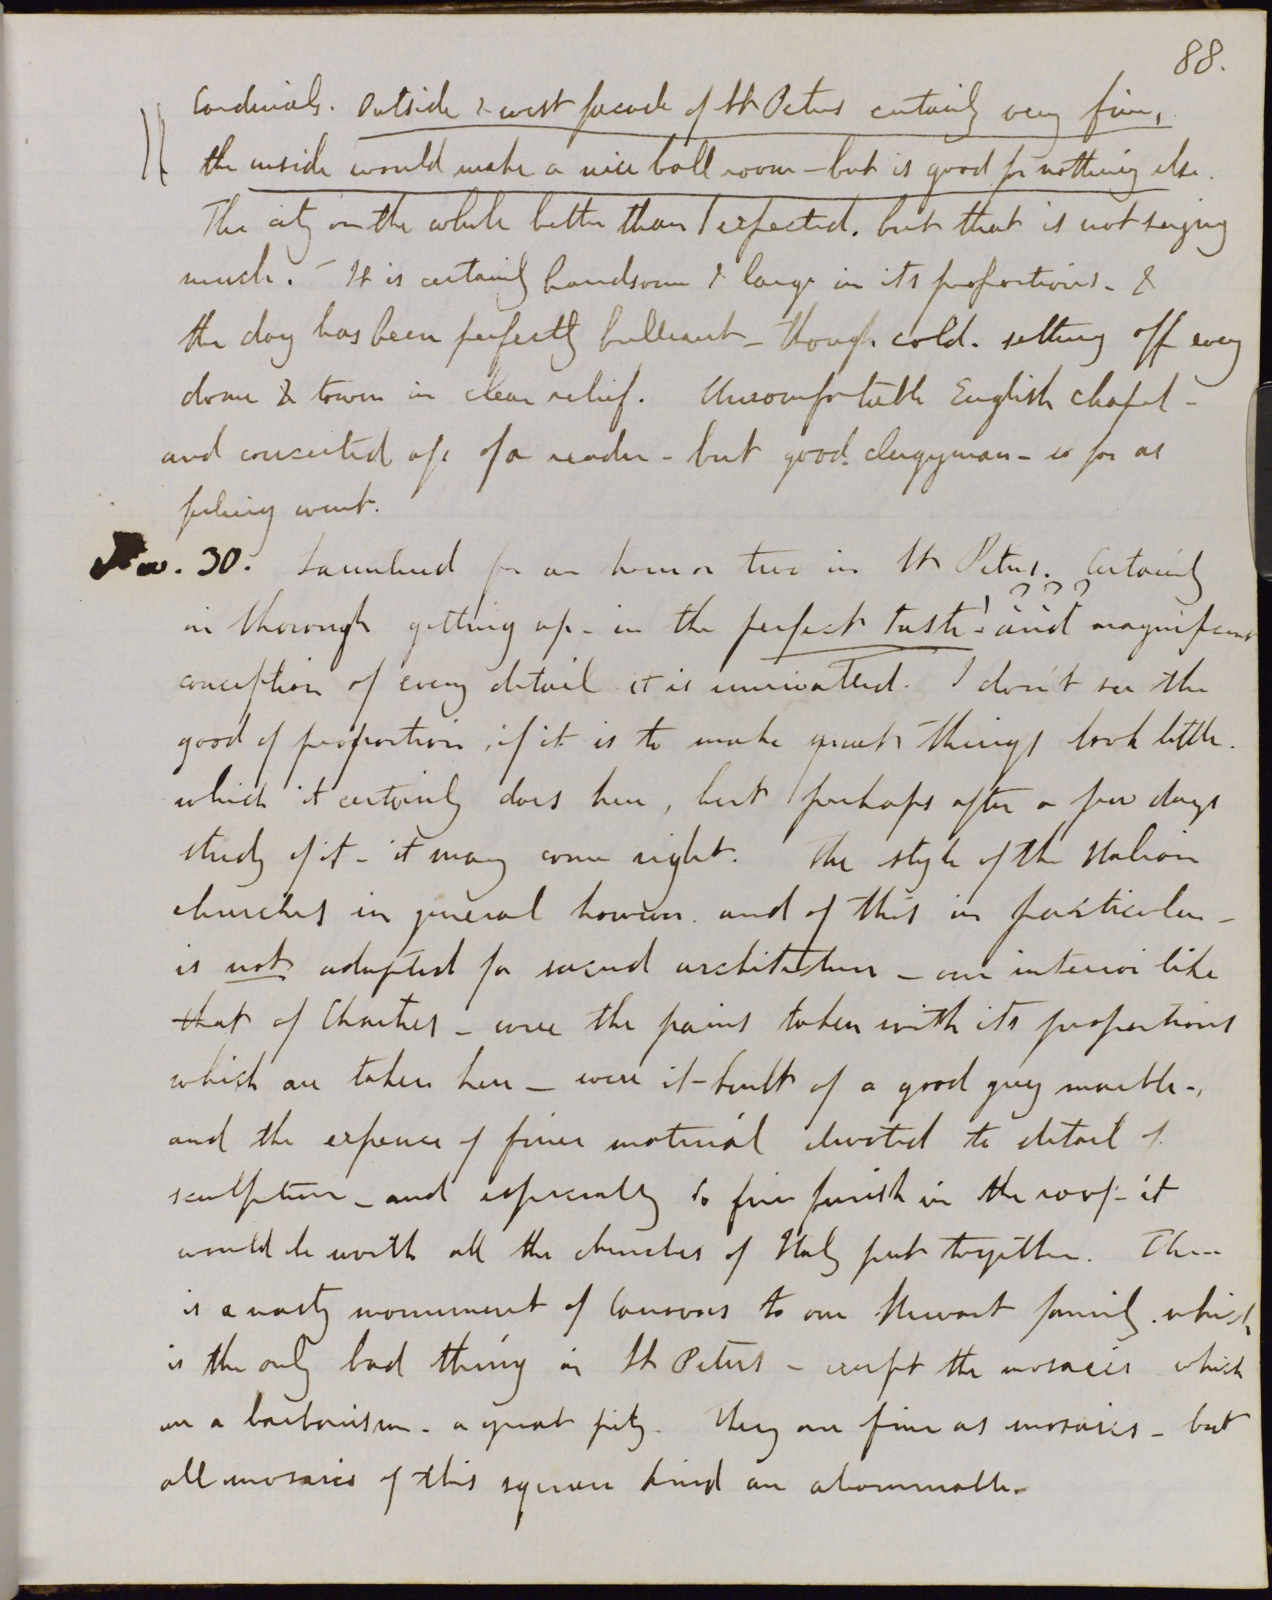 88.
Cardinals. Outside & west facade of St Peters certainly very fine,
the inside would make a nice ball room – but is good for nothing else.
The city on the whole better than I expected. but that is not saying
much. – It is certainly handsome & large in its proportions – &
the day has been perfectly brilliant – though cold. setting off every
dome & tower in clear relief. Uncomfortable English chapel –
and conceited ape of a reader – but good clergyman – so far as
feeling went.
Nov. 30. Saunted for an hour or two in St Peters. Certainly
in thorough getting up – in the perfect taste ! ? ? ? and magnificent
conception of every detail it is unrivalled. I don't see the
good of proportion, if it is to make great things look little.
which it certainly does here, but perhaps after a few days
study of it – it may come right. The style of the Italian
churches in general however. and of this in particular –
is not adapted for sacred architecture – one interior like
that of Chartres – were the pains taken with its proportions
which are taken here – were it built of a good grey marble –,
and the expence of finer material devoted to detail of
sculpture – and especially to fine finish in the roof – it
would be worth all the churches of Italy put together. There
is a nasty monument of Canovas to our Stewart family. which
is the only bad thing in St Peters – except the mosaics which
are a barbarism – a great pity. They are fine as mosaics – but
all mosaics of this square kind are abominable.